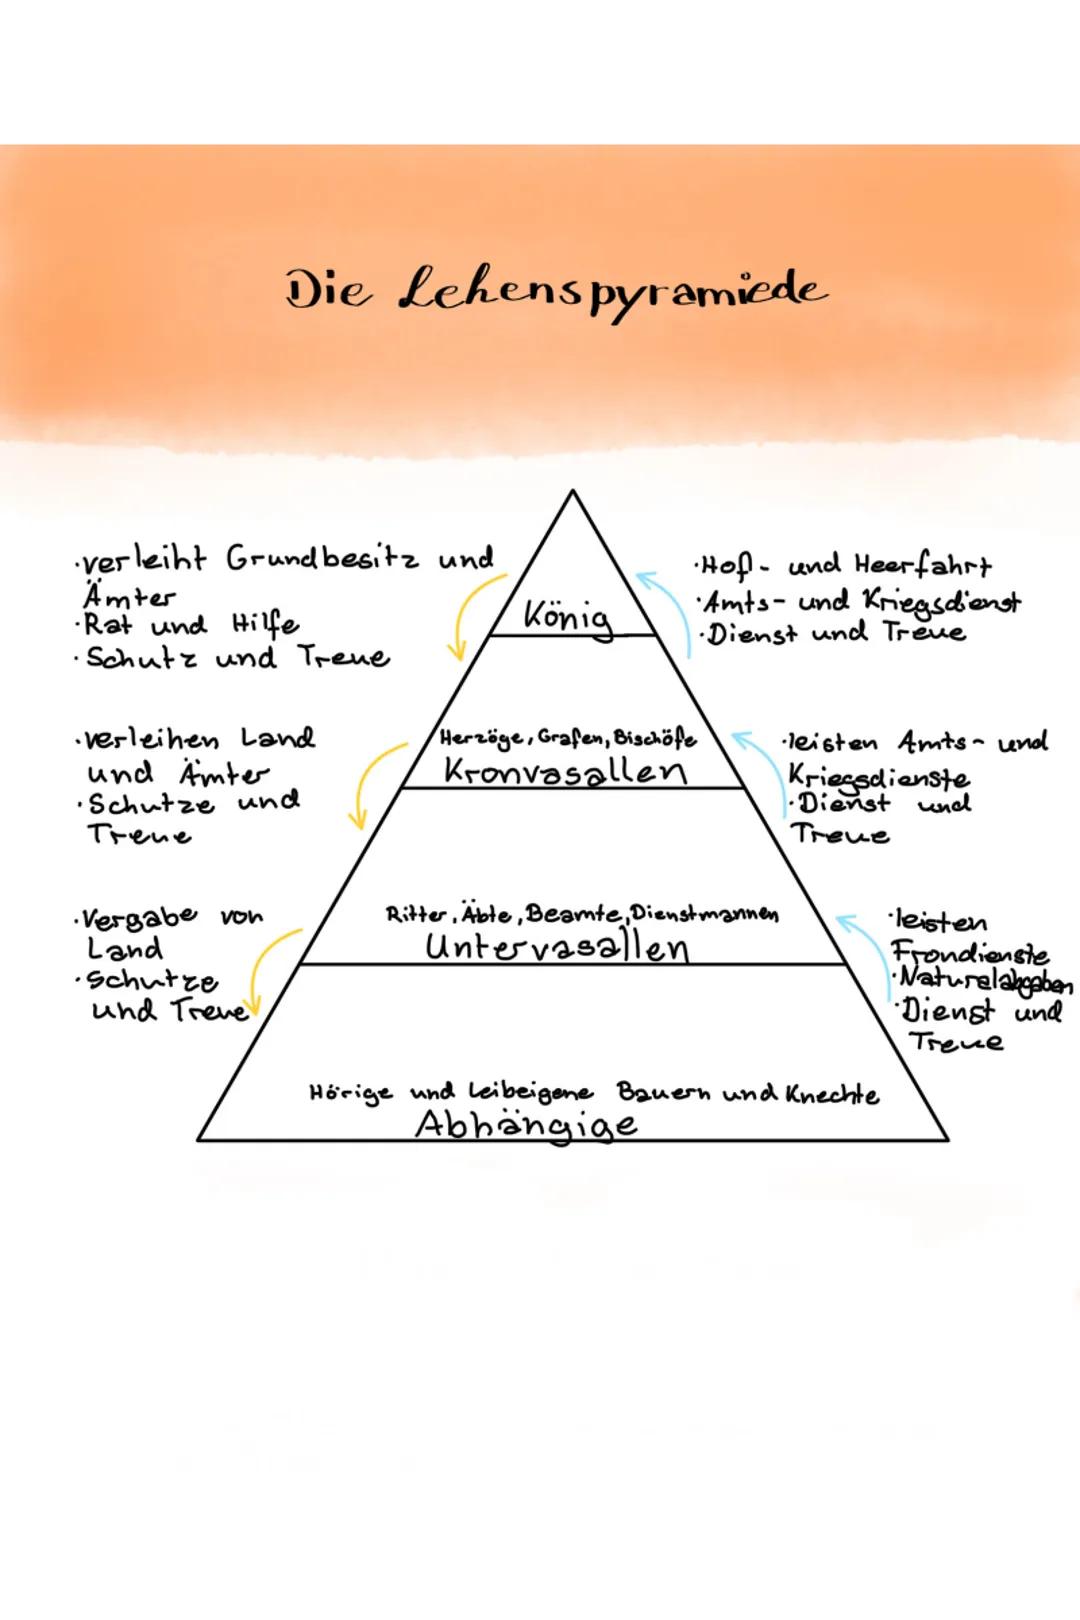 Die Lehenspyramiede
·verleiht Grundbesitz und
Ämter
·Rat und Hilfe
·Schutz und Treue
König
·Hof- und Heerfahrt
·Amts- und Kriegsdienst
·Dienst und Treue
·verleihen Land
und Ämter
·Schutze und
Treue
Herzöge, Grafen, Bischöfe
Kronvasallen
·leisten Amts- und
Kriegsdienste
·Dienst und
Treue
·Vergabe von
Land
·Schutze
und Treue
Ritter, Äbte, Beamte, Dienstmannen
Untervasallen
·leisten
Frondienste
·Naturalabgaben
·Dienst und
Treue
Hörige und Leibeigene Bauern und Knechte
Abhängige